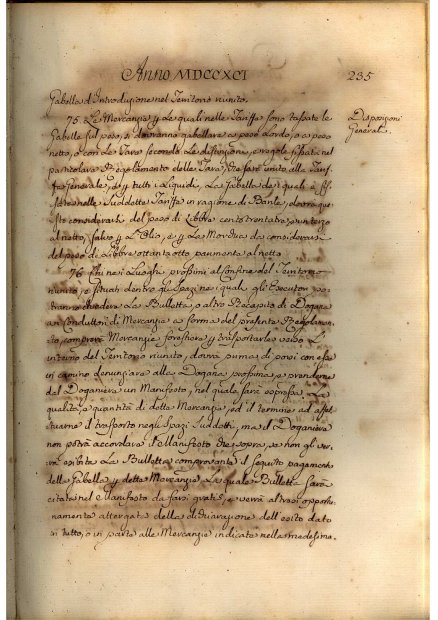 Anno MDCCXCI
235
Gabella d'Introduzione nel Territorio riunito.
75. Le Mercanzie p. le quali nelle Tariffe sono tassate le
Gabelle sul peso, si dovranno gabellare a peso lordo, o a peso
netto, o con le Tare secondo le distinzioni, e regole fissate nel
particolare Regolamento delle Tare, che sarà unito alla Tarif-
fa Generale, e p. tutti i Liquidi, la Gabella de i quali è fis-
sata nella suddetta Tariffa in ragione di Barile, dovrà que-
sti considerarsi del peso di Libbre cento trentatre, un terzo
al netto, salvo p. l'Olio, e p. la Morchia da considerarsi
del peso di Libbre ottantotto parimente al netto
76. Chi nei Luoghi prossimi al Confine del Territorio
riunito, e situati dentro gli Spazi ne i quali gli Esecutori po-
tranno chiedere la Bulletta, o altro Recapito di Dogana
ai Conduttori di Mercanzie a forma del presente Regolamen-
to, comprerà Mercanzie forestiere p. trasportarle verso l'in-
terno del Territorio riunito, dovrà prima di porsi con esse
in camino denunziare alla Dogana prossima, e prenderne
dal Doganiere un Manifesto, nel quale sarà espressa la
qualità, e quantità di dette Mercanzie, ed il termine ad effet-
tuarne il trasporto negli Spazi suddetti, ma il Doganiere
non potrà accordare il Manifesto di sopra, se non gli ver-
rà esibita la Bulletta comprovante il seguito pagamento
della Gabella p. dette Mercanzie la quale Bulletta sarà
citata nel Manifesto da farsi gratis, e verrà altresì opportu-
namente attergata della dichiarazione dell'esito dato
in tutto, o in parte alle Mercanzie indicate nella medesima.
Disposizioni
Generali.